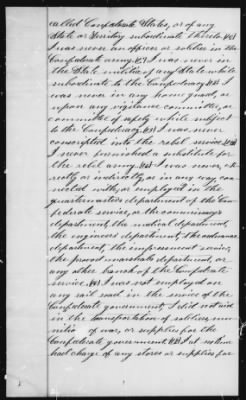 called Confederate States, or of any
State or Territory subordinate thereto.
I was never an officer or soldier in the
Confederate army. I was never in
the State militia of any State while
subordinate to the Confederacy. I
was never in any home guard, or
upon any vigilance committee, or
committee of safety while subject
to the Confederacy. I was never
conscripted into the rebel service.
I never furnished a substitute for
the rebel army. I was never, di-
rectly or indirectly, or in any way, con-
nected with, or employed in the
quartermaster's department of the Con-
federate service, or the commissary's
department, the medical department,
the engineer department, the ordnance
department, the impressment service,
the provost marshal's department, or
any other branch of the Confederate
service. I was not employed on
any rail road in the service of the
Confederate government. I did not aid
in the transportation of soldiers, mu-
nitions of war, or supplies for the
Confederate government. I at no time
had charge of any stores or supplies for